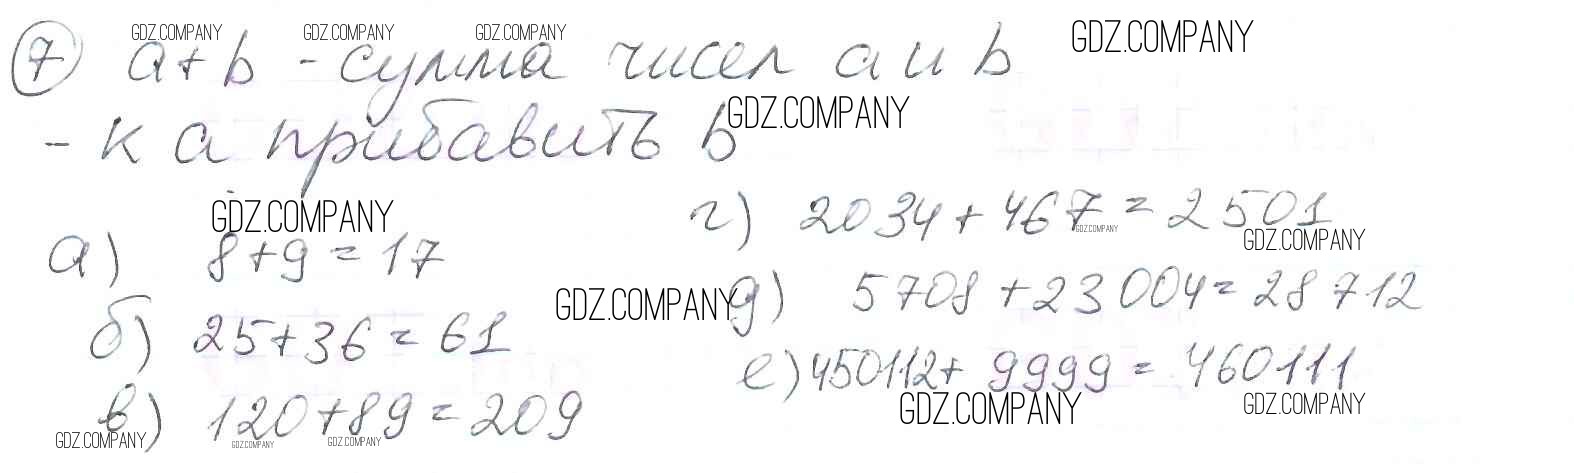 GDZ.COMPANY GDZ.COMPANY GDZ.COMPANY GDZ.COMPANY
7 a+b - сумма чисел a и b
GDZ.COMPANY
- к a прибавить b
GDZ.COMPANY
а) 8+9=17
б) 25+36=61
в) 120+89=209
GDZ.COMPANY GDZ.COMPANY GDZ.COMPANY
г) 2034+467=2501
GDZ.COMPANY GDZ.COMPANY
GDZ.COMPANY
д) 5708+23004=28712
е) 450112+9999=460111
GDZ.COMPANY GDZ.COMPANY